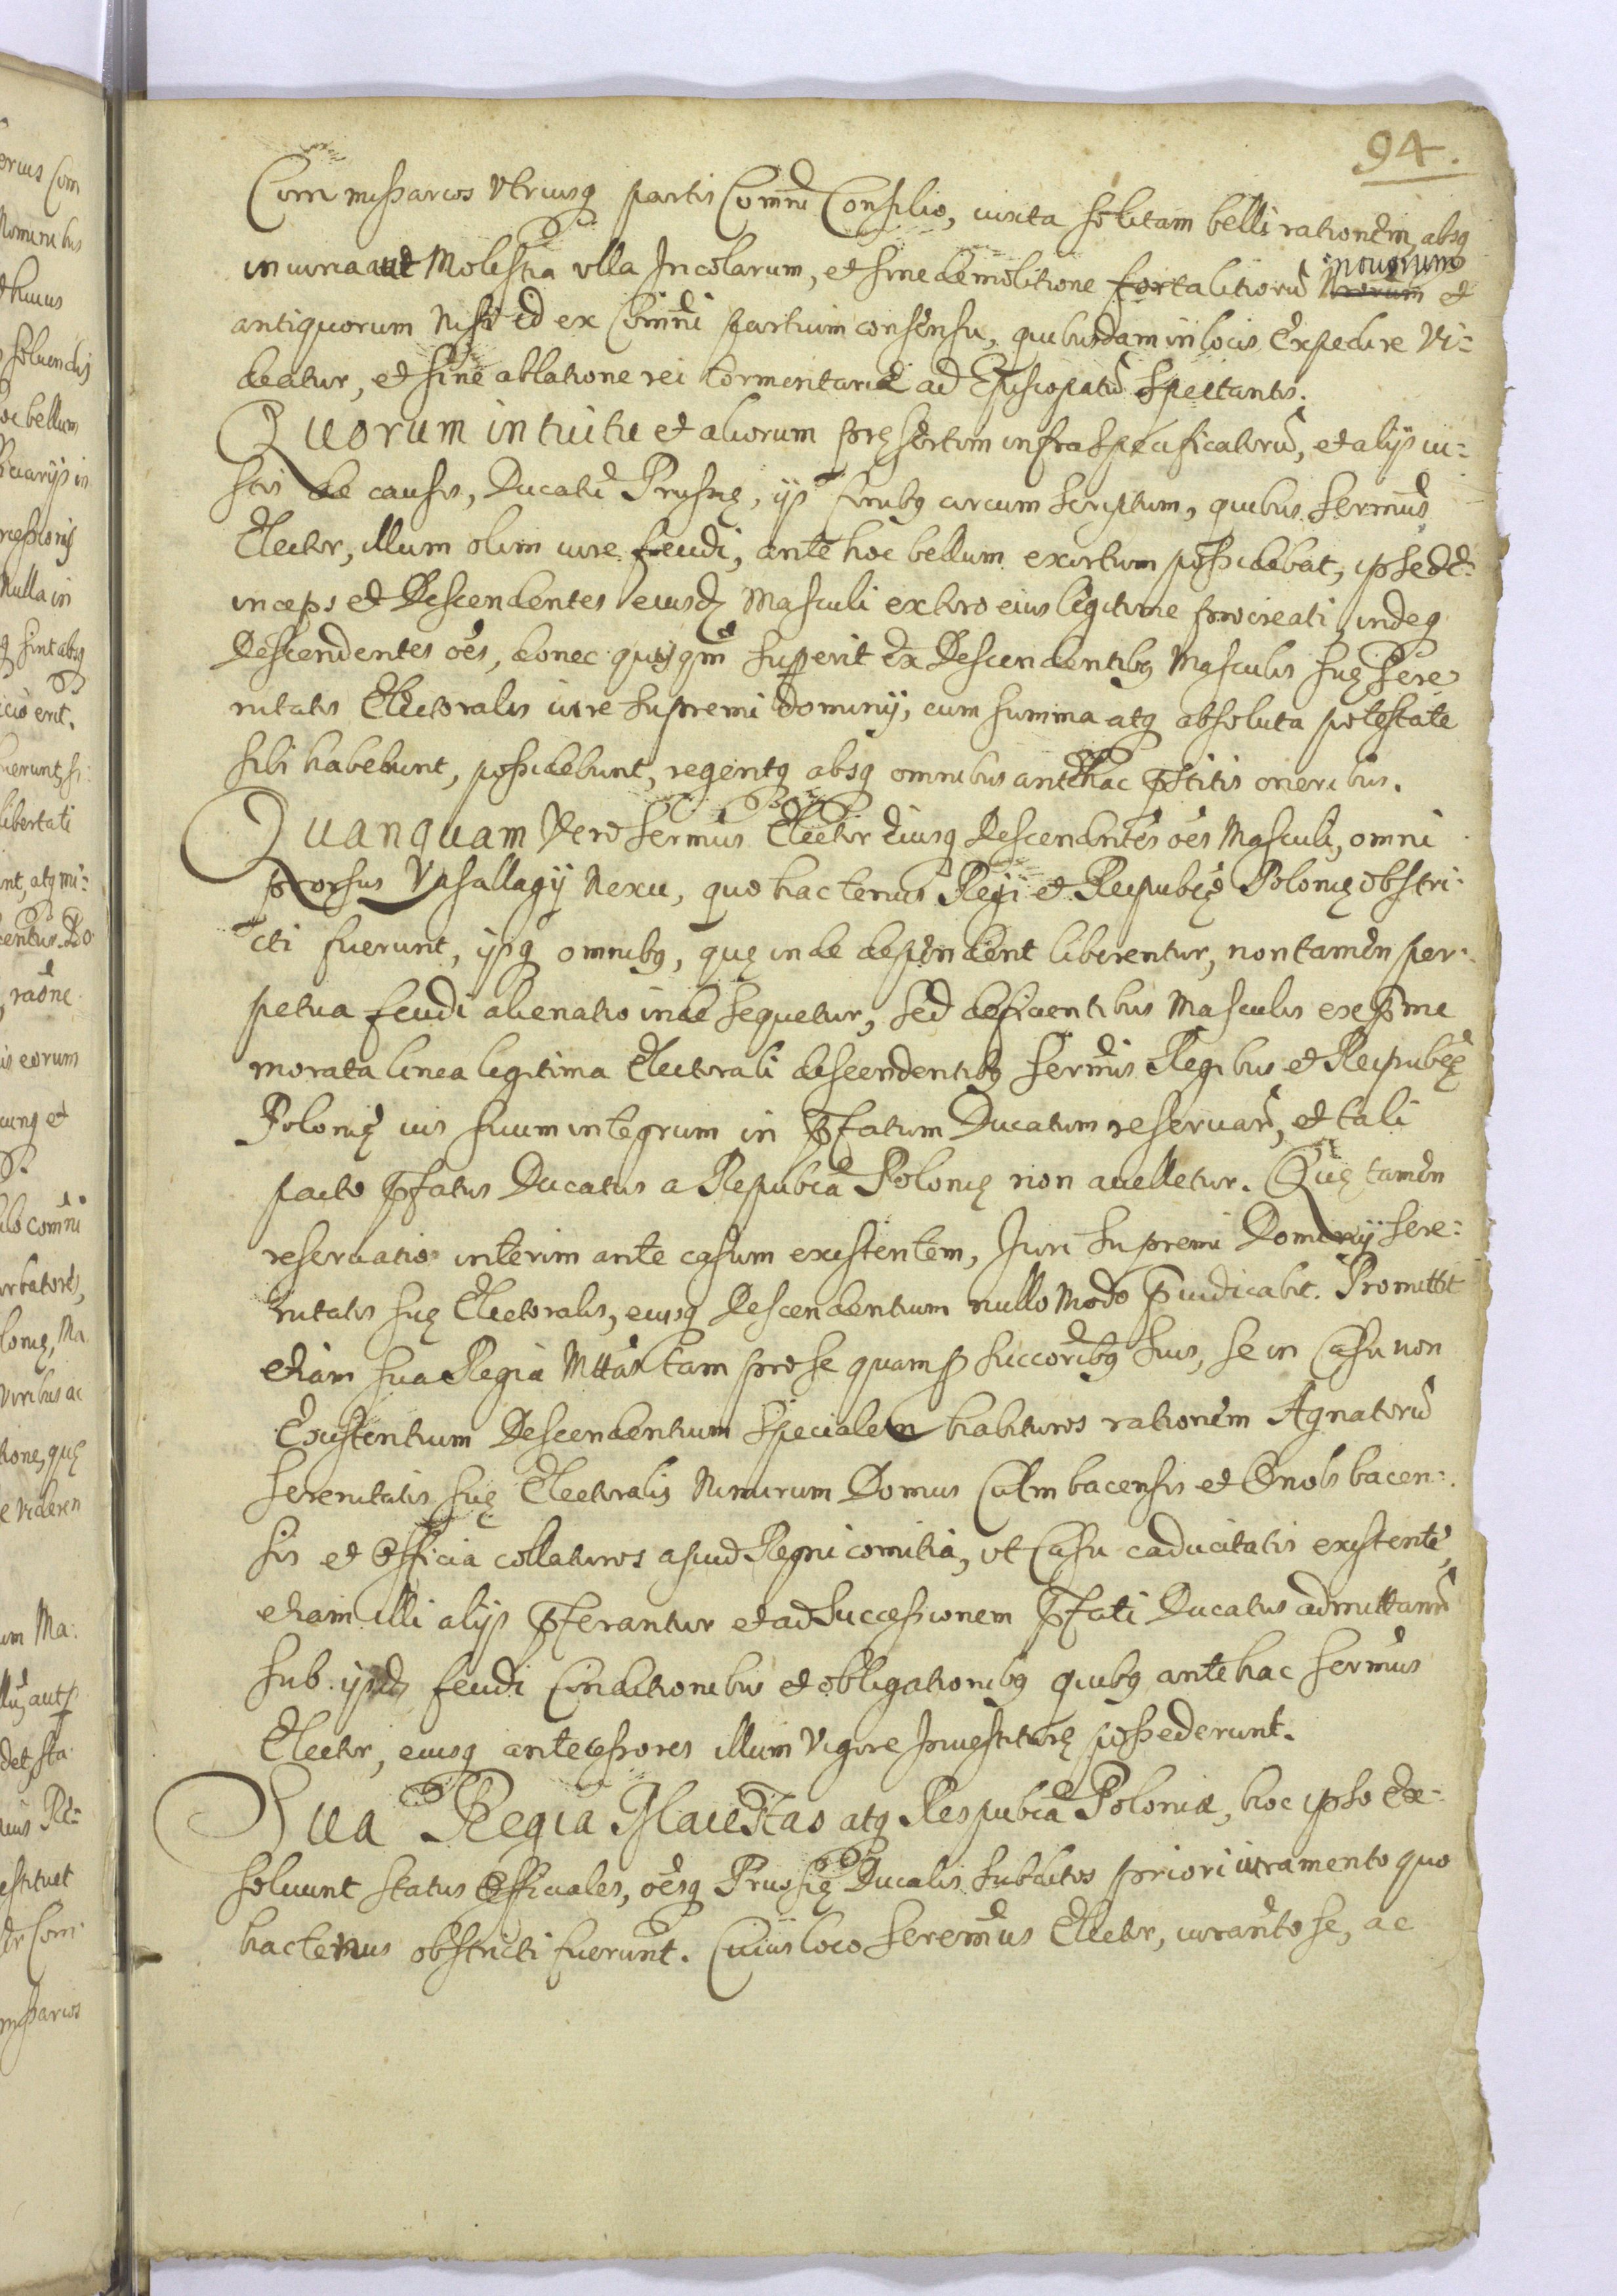 94.
Commissarios Utriusq partis Comni Consilio, iuxta solitam belli rationem, absq
iniuria aut Molestia ulla Incolarum, et sine demolitione fortalitiorũ novorum et
antiquorum Nisi id ex Comni partium consensu, quibusdam in locis Expedire Vi=
deatur, et sine ablatione rei tormentariæ ad Episcopatũ Spectantis.
Quorum intuitu et aliorum pręsertim infra specificatorũ, et alijs iu=
stis de causis, Ducatũ Prussię, ijs finibq circum scriptum, quibus Sermus
Elector, illum olim iure feudi, ante hoc bellum exortum possidebat, ipse de=
inceps et Descendentes eiusd Masculi ex luro eius legitime procreati, indeq
Descendentes oẽs, donec quisqm superit Ex Descendentibq Masculis suę Sere
nitatis Electoralis iure Supremi dominij, cum summa atq absoluta potestate
sibi habebunt, possidebunt, regentq absq omnibus antehac pstitis oneribus.
Quanquam Vero Sermus Elector Eiusq Descendentes oẽs Masculi, omni
prorsus Vasallagij Nexu, quo hactenus Regi et Reipubcę Polonię obstri=
cti fuerunt, ijsq omnibq, quę inde dependent liberentur, non tamen per=
petua feudi alienatio inde sequetur, sed deficientibus Masculis ex pme
morata linea legitima Electorali descendentibq Sermis Regibus et Reipubcę
Polonię ius suum integrum in pfatum Ducatum reservarĩ, et tali
pacto pfatus Ducatus a Republcã Polonię non avelletur. Quę tamen
reservatio interim ante casum existentem, Iuri Supremi Dominij Sere=
nitatis suę Electoralis, eiusq Descendentium nullo Modo piudicabit. Promittit
etiam sua Regia Mttas tam pro se quam p succoribq suis, se in Casu non
Existentium Descendentium Specialem habituros rationem Agnatorũ
Serenitatis suę Electoralis Nimirum Domus Culmbacensis et Onolsbacen=
sis et Officia collaturos apud Regni comitia, ut Casu caducitatis existente,
etiam illi alijs pferantur et ad Successionem pfati Ducatus admittantr
sub ijsd feudi Conditionibus et obligationibq quibq antehac Sermus
Elector, eiusq antecessores illum Vigore Investiturę possederunt.
Sua Regia Maiestas atq Respubcã Poloniæ, hoc ipso Ex=
solvunt status Officiales, oẽsq Prussię Ducalis subditos priori iuramento quo
hactenus obstricti fuerunt. Cuius loco Seremus Elector, iuranto se, ac